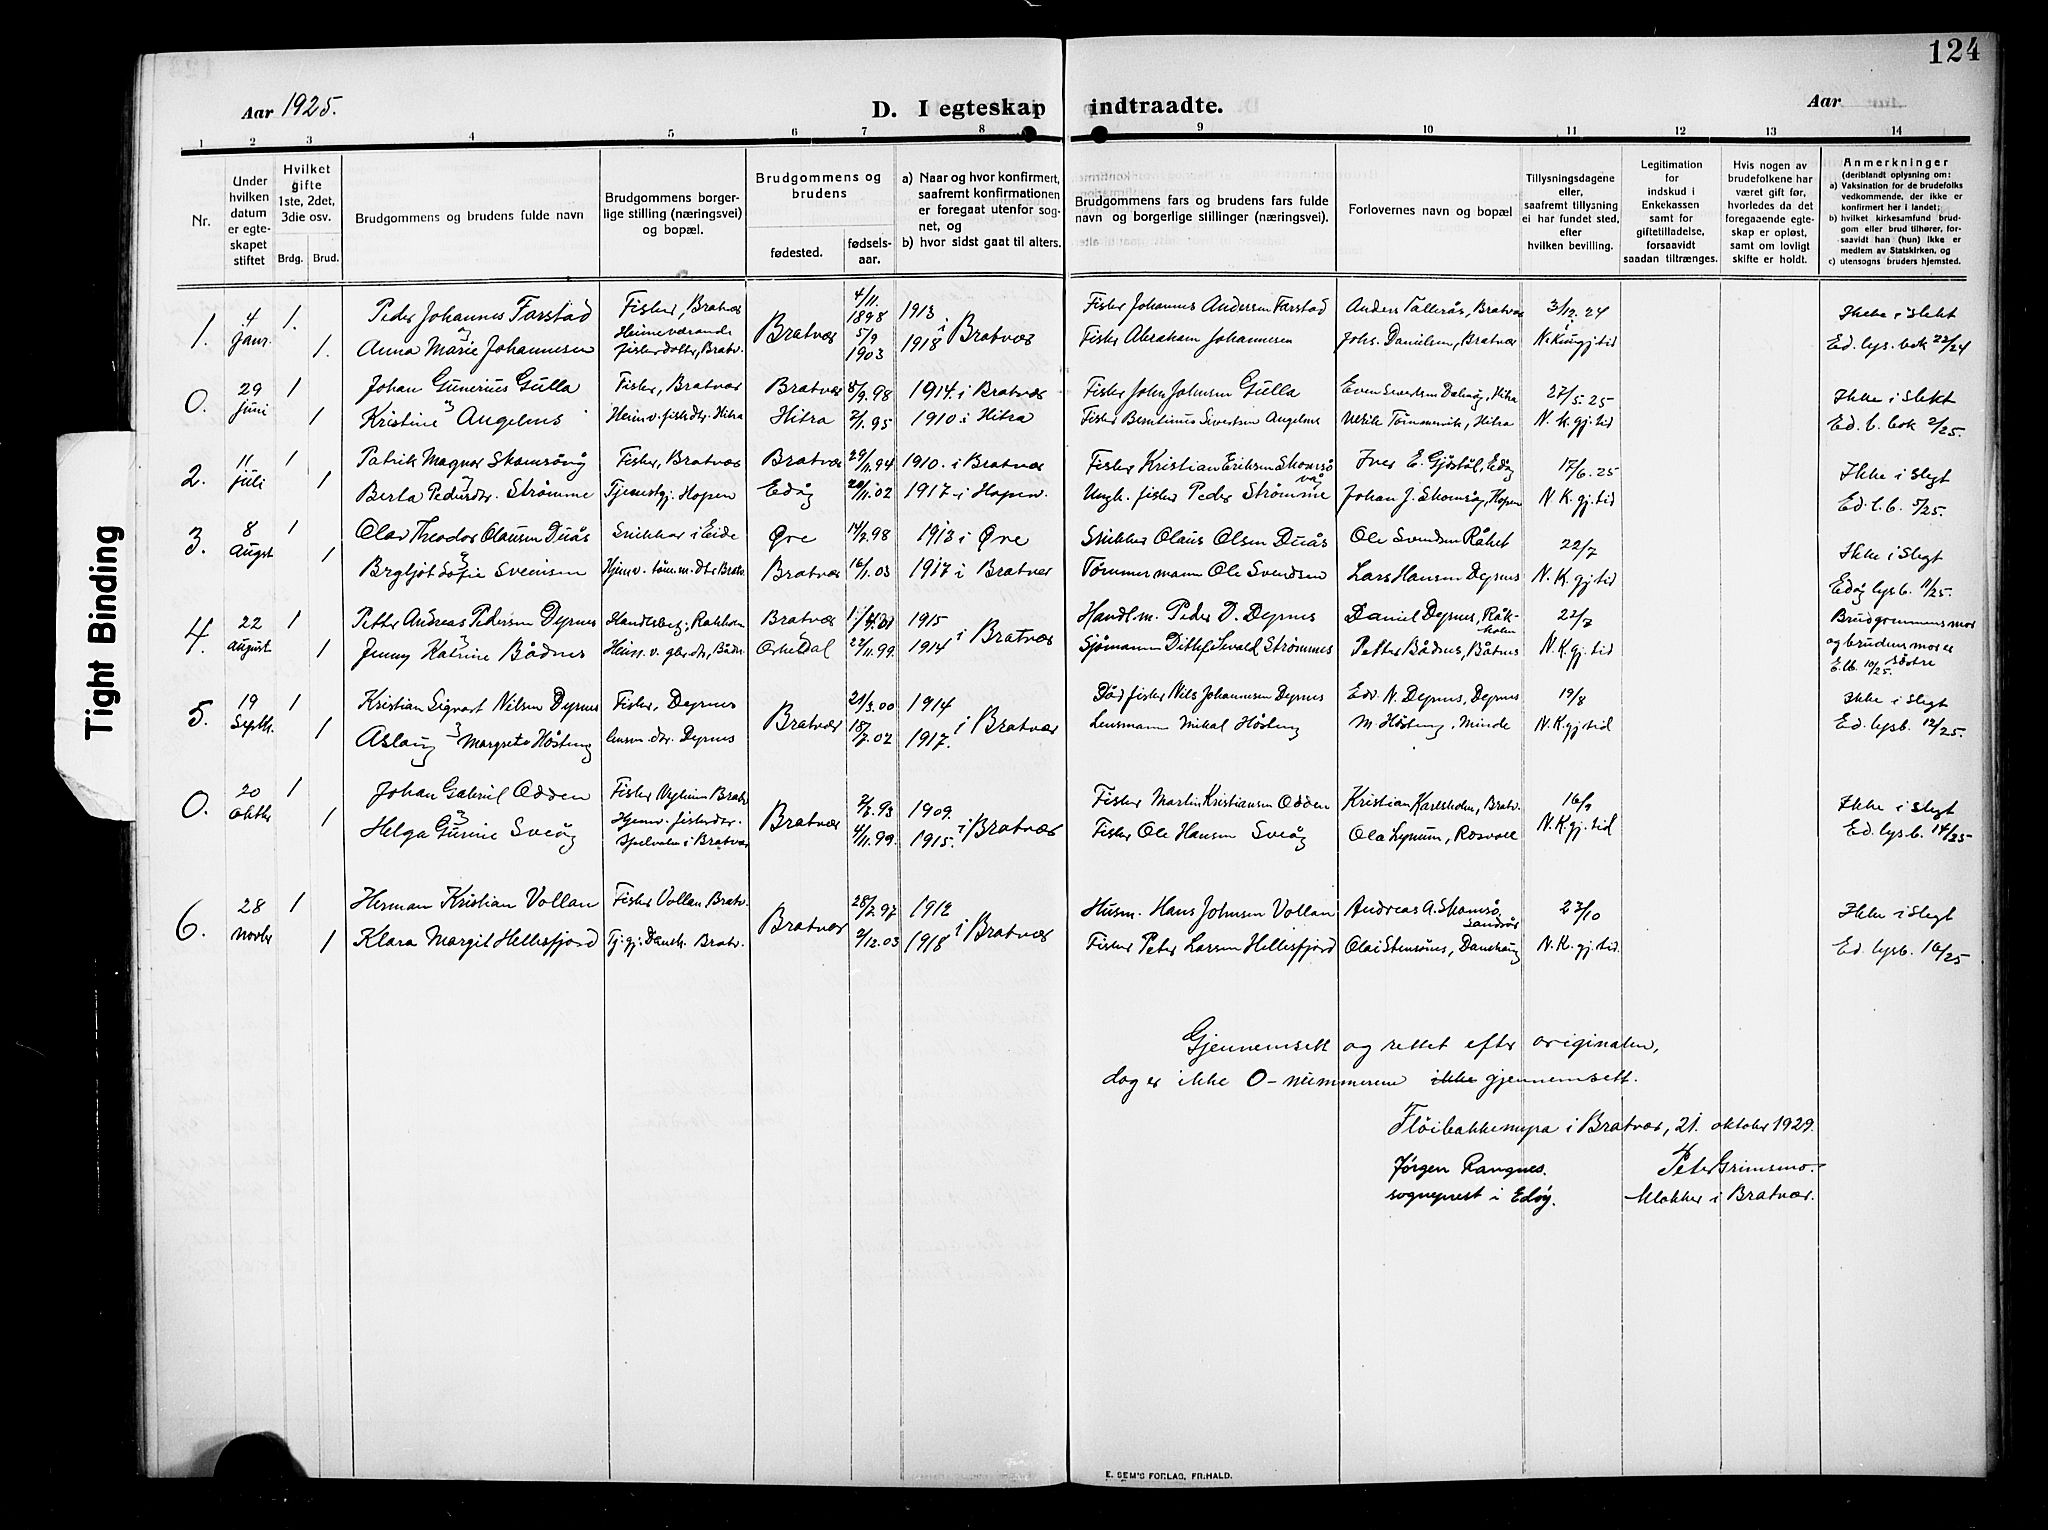 124
Aar 1925.
D. I egteskap indtraadte.
Aar
1 2 3 4 5 6 7 8 9 10 11 12 13 14
Nr.
Under hvilken datum er egteskapet stiftet
Hvilket gifte 1ste, 2det, 3die osv.
Brdg. Brud.
Brudgommens og brudens fulde navn
Brudgommens borgerlige stilling (næringsvei) og bopæl.
Brudgommens og brudens
fødested.
fødselsaar.
a) Naar og hvor konfirmert, saafremt konfirmationen er foregaat utenfor sognet, og
b) hvor sidst gaat til alters.
Brudgommens fars og brudens fars fulde navn og borgerlige stillinger (næringsvei).
Forlovernes navn og bopæl
Tillysningsdagene eller, saafremt tillysning ei har fundet sted, efter hvilken bevilling.
Legitimation for indskud i Enkekassen samt for giftetilladelse, forsaavidt saadan tiltrænges.
Hvis nogen av brudefolkene har været gift før, hvorledes da det foregaaende egteskap er opløst, samt om lovligt skifte er holdt.
Anmerkninger
(deriblandt oplysning om:
a) Vaksination for de brudefolks vedkommende, der ikke er konfirmert her i landet;
b) hvilket kirkesamfund brudgom eller brud tilhører, forsaavidt han (hun) ikke er medlem av Statskirken, og
c) utensogns bruders hjemsted.
1. 4 Janr. 1. Peder Johannes Farstad Fisker, Bratvær Bratvær 4/11. 1898 1913 i Bratvær Fisker Johannes Andersen Farstad Anders Tallerås, Bratvær 3/12. 24 Ikke i slekt
og 1. Anna Marie Johannesen Heimeværande fiskerdotter, Bratv. 5/9 1903 1918 Fisker Abraham Johannesen Johs. Danielsen, Bratvær N. Kun gj. tid Ed. lys. bok 22/24
0. 29 juni 1 Johan Gunerius Gulla Fisker, Bratvær Bratvær 5/9. 98 1914. i Bratvær Fisker John Johnsen Gulla Even Sivertsen Dalvåg, Hitra 27/5. 25 Ikke i slekt
og 1 Kristine Angelms Heimv. fiskdtr. Hitra Hitra 2/1. 95 1910 i Hitra Fisker Berntinus Sivertsen Angelms Ulrik Tømmervik, Hitra N. K. gj. tid Ed. l. bok 2/25.
2. 11 juli 1 Patrik Magnar Skomsøvåg Fisker, Bratvær Bratvær 29/11. 94 1910. i Bratvær Fisker Kristian Eriksen Skomsøvåg Iver E. Gjøstøl, Edøy 17/6. 25 Ikke i slegt
og 1 Berta Pedersdtr. Strømme Tjenestgj. Hopen Edøy 20/11. 02 1917 i Hopen. Ungk. fisker Peder Strømme Johan J. Skomsøy, Hopen N. K. gj. tid Ed. l. b. 5/25.
3. 8 Augst 1 Olav Theodor Olausen Duås Snikkar i Eide Øre 14/2. 98 1913 i Øre Snikker Olaus Olsen Duås Ole Svendsen Råket 22/7 Ikke i slegt
og 1 Brgljot Sofie Svensen Hjemv. tøm. m. dtr Bratv. Bratvær 16/1. 03 1917 i Bratvær Tømmermann Ole Svendsen Lars Hansen Dyrnes N. K. gj. tid Edøy lysb. 11/25.
4. 22 August 1 Petter Andreas Pedersen Dyrnes Handelsbetj. Rokholm Bratvær 1915 i Bratvær Handl.m. Peder D. Dyrnes Daniel Dyrnes, Råkholm 22/7 Brudgommens mor
og 1 Jenny Katrine Bådnes Heim. v. gbr. dtr, Bådn. Orkedal 22/11. 99. 1914 Sjømann Ditlef Sevald Strømmes Petter Bådnes, Båtnes N. K. gj. tid og brudens mor er søstre
E. lb. 10/25.
5. 19 Septbr. 1 Kristian Sigvart Nilsen Dyrnes Fisker, Dyrnes Bratvær 21/3. 00 1914 i Bratvær Død fisker Nils Johannesen Dyrnes Edv. N. Dyrnes, Dyrnes 19/8 Ikke i slegt
og 1 Aslaug Margrete Høsteng lensm. dtr. Dyrnes 18/7. 02 1917. Lensmann Mikal Høsteng M. Høsteng, Minde N. K. gj. tid Ed. lysb. 12/25.
0. 20 Oktbr 1 Johan Gabriel Odden Fisker Nyheim Bratv Bratvær 2/3. 93 1909. i Bratvær Fisker Martin Kristiansen Odden Kristian Karlsholm, Bratv. 16/9 Ikke i slegt
og 1 Helga Gurine Sveøy Hjemv. fiskerdtr. Bjelvolm i Bratvær 4/11. 99. 1915. Fisker Ole Hansen Sveøy Ola Lynum, Rosvoll N. K. gj. tid Ed. lys. b. 14/25
6. 28 Novbr 1 Herman Kristian Vollan Fisker Vollan Bratv. Bratvær 28/2. 97 1912 i Bratvær Husm. Hans Johnsen Vollan Andreas A. Skomsø, Sandvær 23/10 Ikke i slegt
1 Klara Margit Hellesfjord Tj. gj. Dansk. Bratv. 2/12. 03 1918 Fisker Peter Larsen Hellesfjord Olai Stensønes, Danskaug N. K. gj. tid. Ed. lysb. 16/25
Gjennemsett og rettet efter originalen,
dog er ikke 0-nummerene ikke gjennemsett.
Fløibakkemyra i Bratvær, 21. oktober 1929.
Jørgen Rangnes. Peter Grimsmo.
sogneprest i Edøy. klokker i Bratvær.
E. SEM'S FORLAG, FR.HALD.
Tight Binding